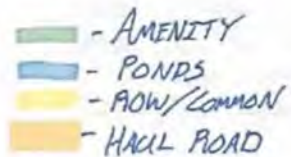 - AMENITY
- PONDS
- ROW/COMMON
- HAUL ROAD